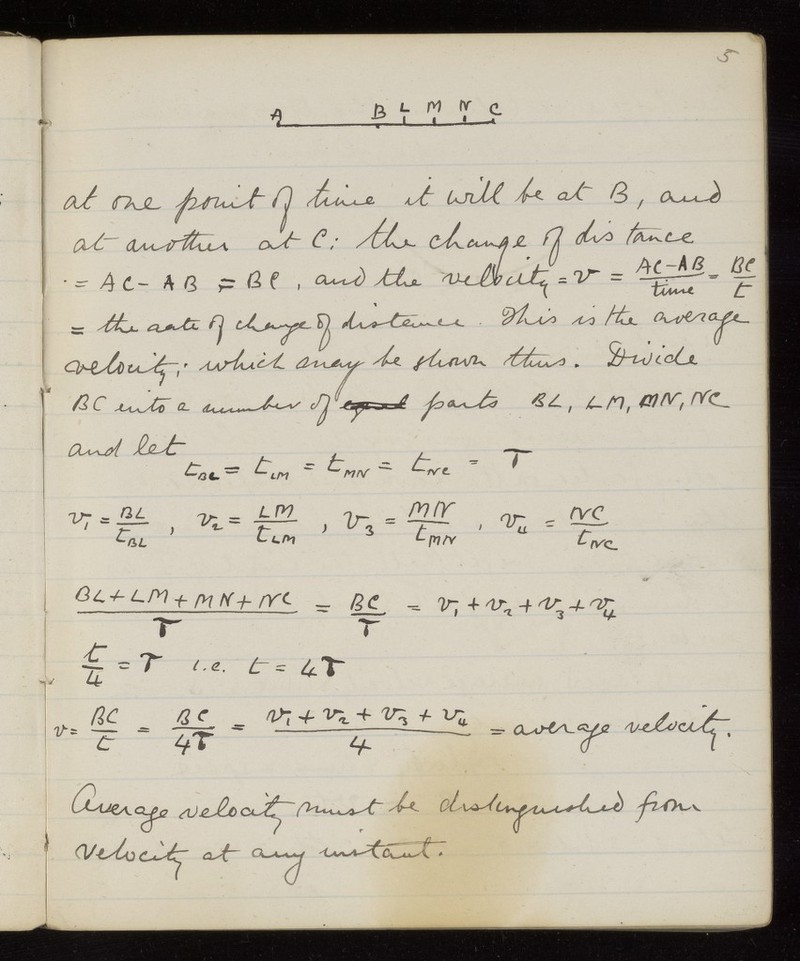 5
A B L M N C
at one point of time it will be at B, and
at another at C: the change of distance
= AC - AB = BC, and the velocity = v = (AC-AB)/time = BC/t
= the rate of change of distance. This is the average
velocity; which may be shown thus. Divide
BC into a number of equal parts BL, LM, MN, NC
and let
t_BL = t_LM = t_MN = t_NC = T
v₁ = BL/t_BL , v₂ = LM/t_LM , v₃ = MN/t_MN , v₄ = NC/t_NC
(BL + LM + MN + NC)/T = BC/T = v₁ + v₂ + v₃ + v₄
t/4 = T i.e. t = 4T
v = BC/t = BC/4T = (v₁ + v₂ + v₃ + v₄)/4 = average velocity.
Average velocity must be distinguished from
velocity at any instant.